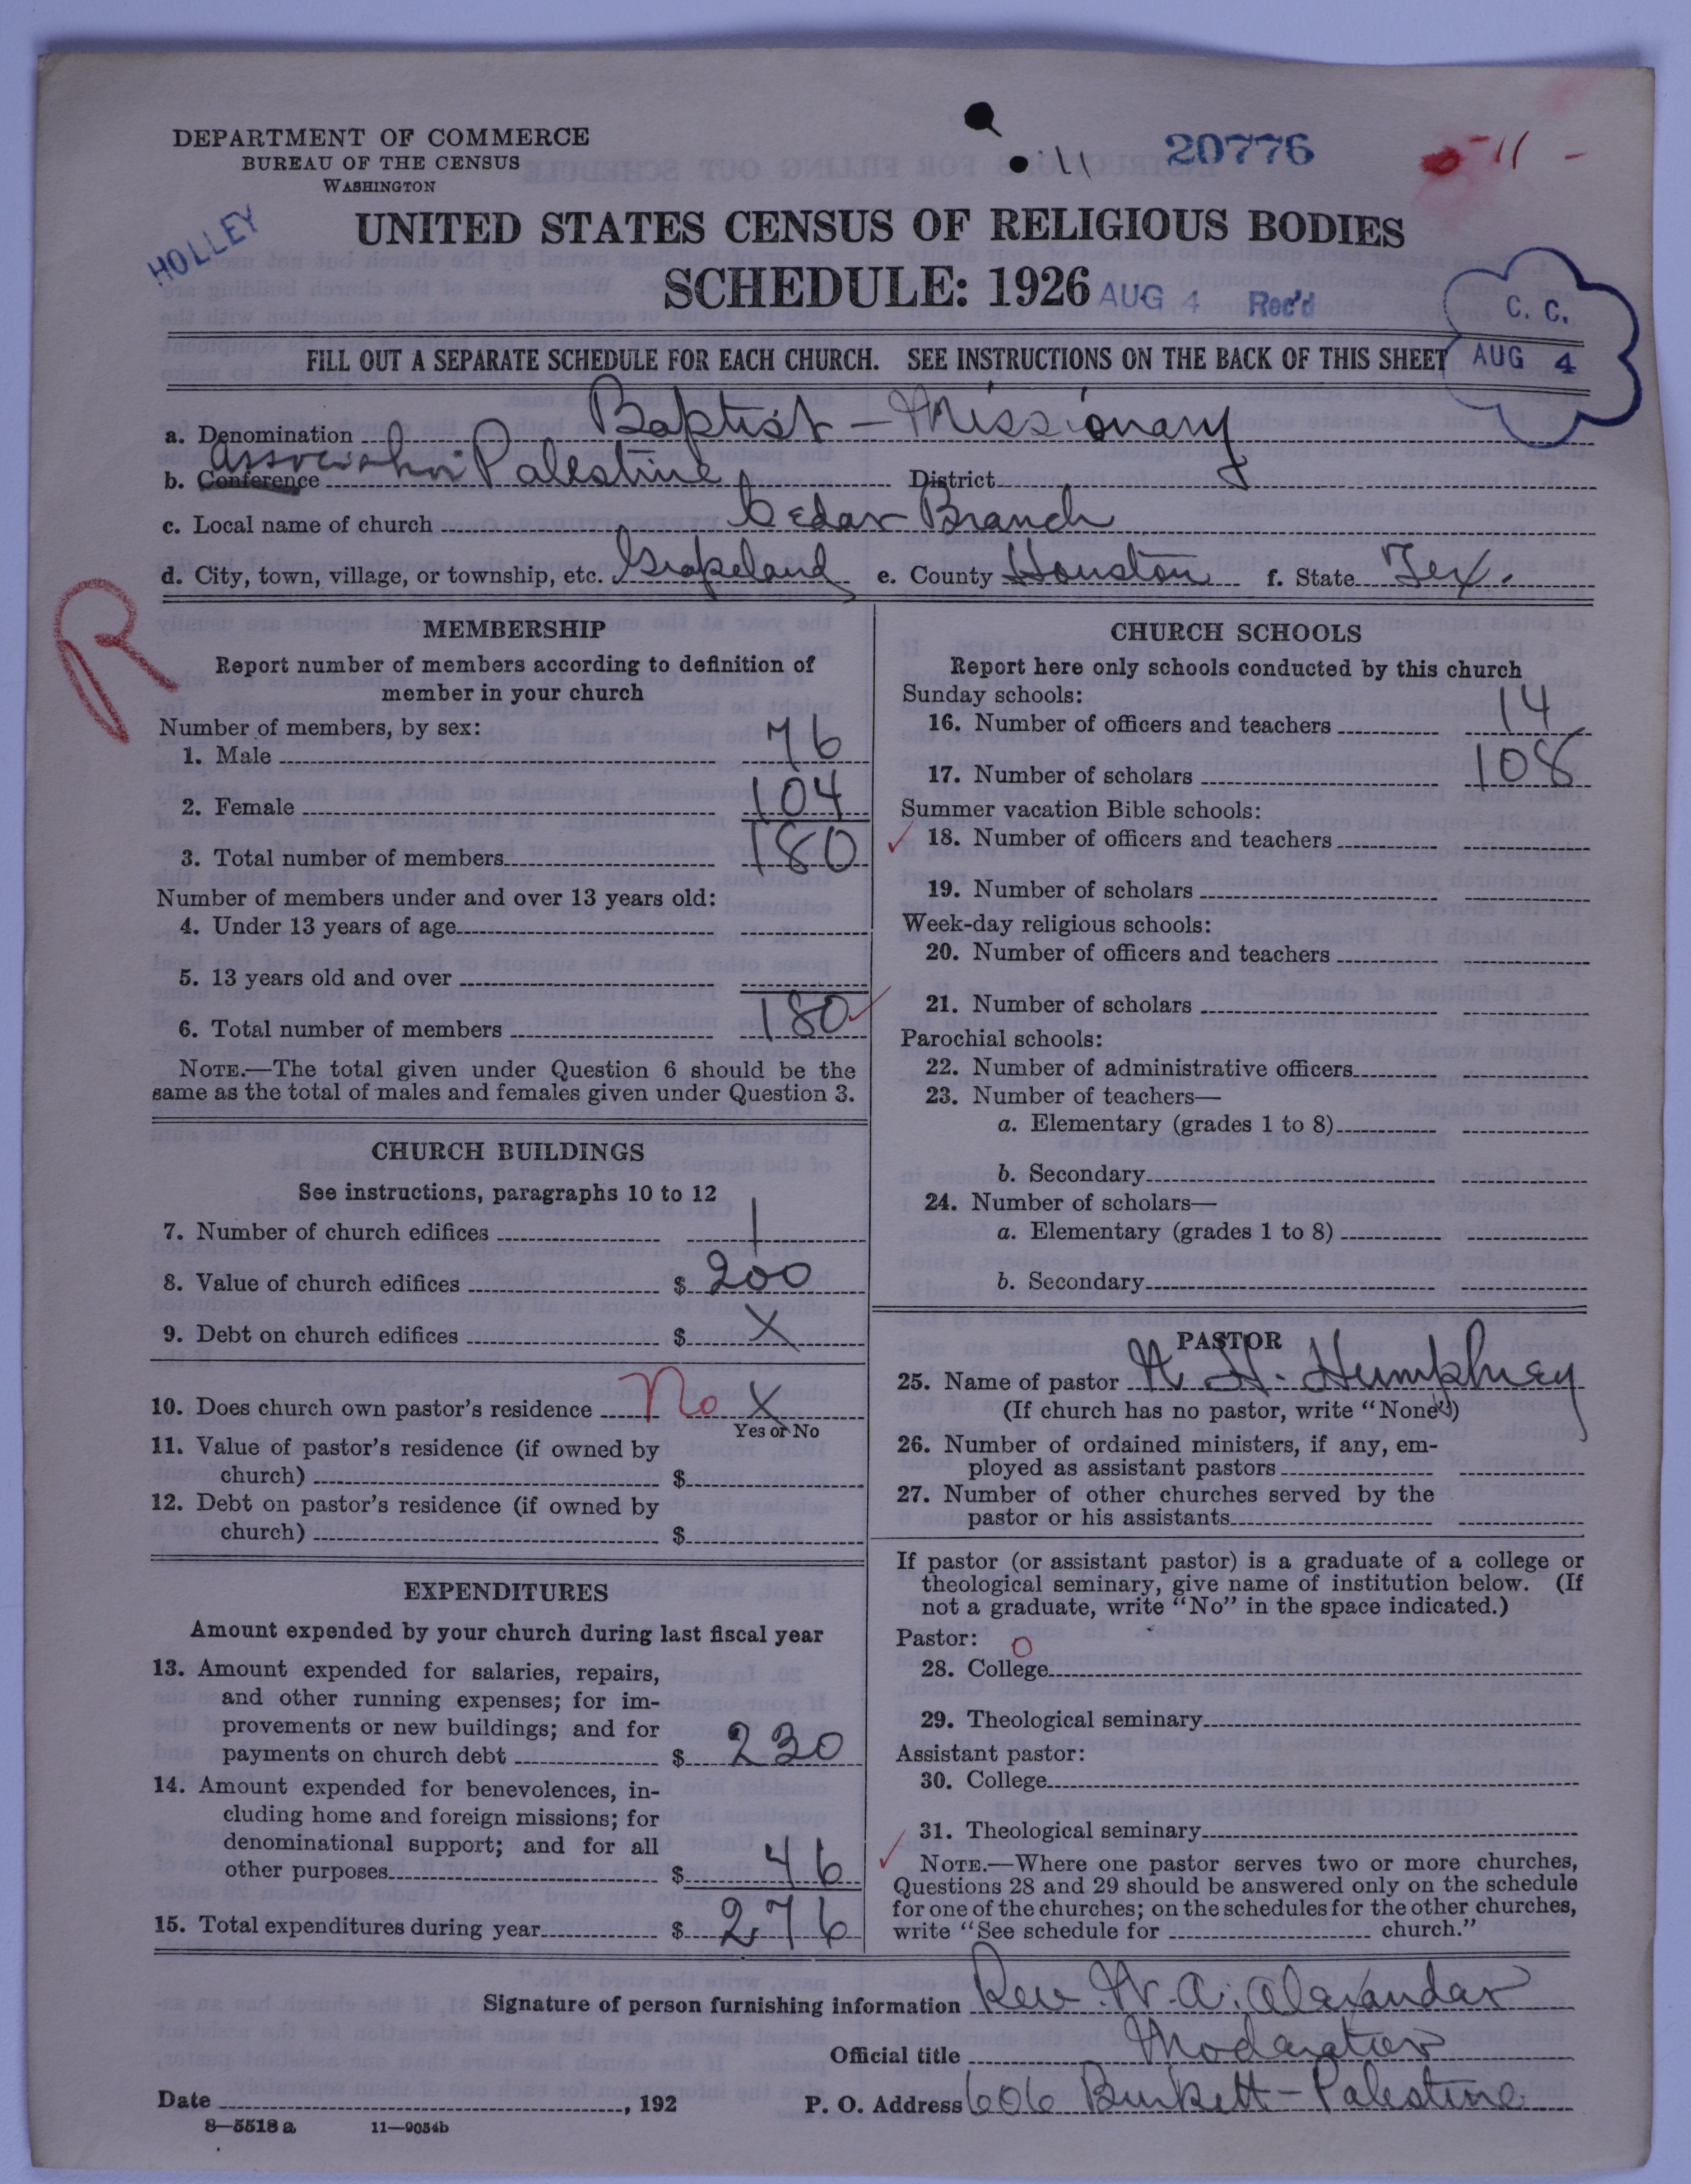 DEPARTMENT OF COMMERCE
BUREAU OF THE CENSUS
WASHINGTON
20776
11
-11-
HOLLEY
UNITED STATES CENSUS OF RELIGIOUS BODIES
SCHEDULE: 1926
AUG 4 Rec'd
C. C.
AUG 4
FILL OUT A SEPARATE SCHEDULE FOR EACH CHURCH. SEE INSTRUCTIONS ON THE BACK OF THIS SHEET
a. Denomination Baptist - Missionary
b. Conference Association Palestine District
c. Local name of church Cedar Branch
d. City, town, village, or township, etc. Grapeland e. County Houston f. State Tex.
R
MEMBERSHIP
Report number of members according to definition of
member in your church
Number of members, by sex:
1. Male 76
2. Female 104
3. Total number of members 180
Number of members under and over 13 years old:
4. Under 13 years of age
5. 13 years old and over
6. Total number of members 180
NOTE.—The total given under Question 6 should be the
same as the total of males and females given under Question 3.
CHURCH BUILDINGS
See instructions, paragraphs 10 to 12
7. Number of church edifices 1
8. Value of church edifices $ 200
9. Debt on church edifices $ X
10. Does church own pastor's residence No X
Yes or No
11. Value of pastor's residence (if owned by
church) $
12. Debt on pastor's residence (if owned by
church) $
EXPENDITURES
Amount expended by your church during last fiscal year
13. Amount expended for salaries, repairs,
and other running expenses; for im-
provements or new buildings; and for
payments on church debt $ 230
14. Amount expended for benevolences, in-
cluding home and foreign missions; for
denominational support; and for all
other purposes $ 46
15. Total expenditures during year $ 276
CHURCH SCHOOLS
Report here only schools conducted by this church
Sunday schools:
16. Number of officers and teachers 14
17. Number of scholars 108
Summer vacation Bible schools:
18. Number of officers and teachers
19. Number of scholars
Week-day religious schools:
20. Number of officers and teachers
21. Number of scholars
Parochial schools:
22. Number of administrative officers
23. Number of teachers—
a. Elementary (grades 1 to 8)
b. Secondary
24. Number of scholars—
a. Elementary (grades 1 to 8)
b. Secondary
PASTOR
25. Name of pastor H. Humphrey
(If church has no pastor, write "None")
26. Number of ordained ministers, if any, em-
ployed as assistant pastors
27. Number of other churches served by the
pastor or his assistants
If pastor (or assistant pastor) is a graduate of a college or
theological seminary, give name of institution below. (If
not a graduate, write "No" in the space indicated.)
Pastor: 0
28. College
29. Theological seminary
Assistant pastor:
30. College
31. Theological seminary
NOTE.—Where one pastor serves two or more churches,
Questions 28 and 29 should be answered only on the schedule
for one of the churches; on the schedules for the other churches,
write "See schedule for church."
Signature of person furnishing information Rev. W. A. Alaxandar
Official title Modaratior
Date , 192 P. O. Address 606 Burkett - Palestine
8—5518 a 11—9054b